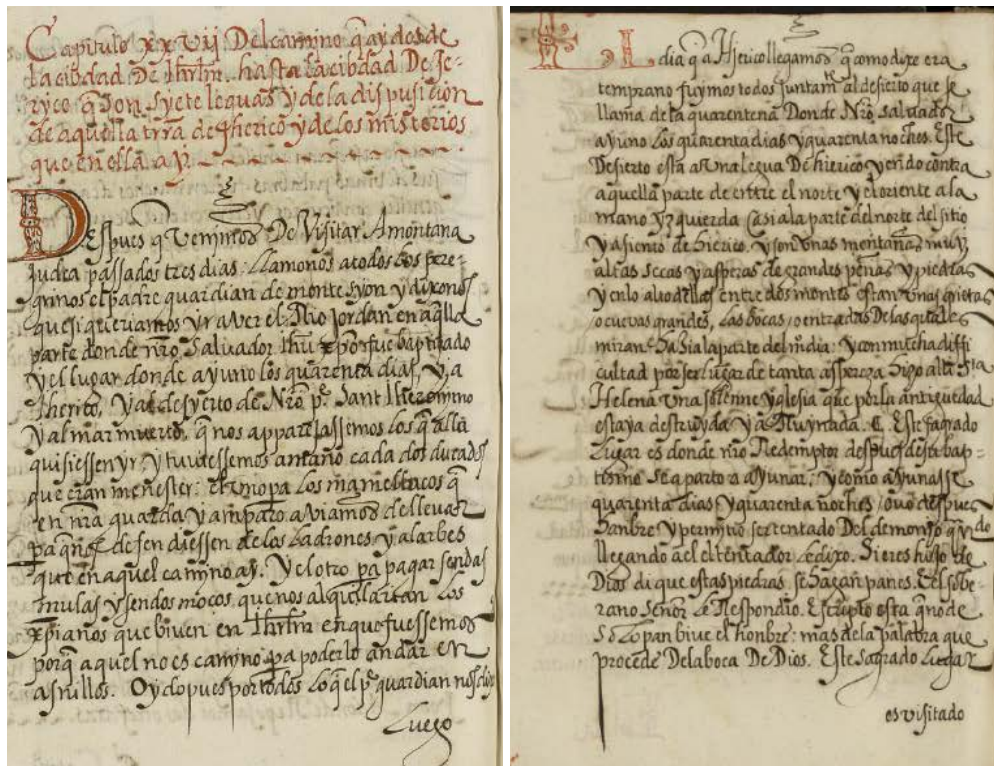 Capitulo xxvij Del camino q̃ ay desde
la cibdad De Ihrlm. hasta la cibdad De Je-
ryco q̃ son syete leguas y de la disposicion
de aquella trr̃a de Jherico y de los misterios
que en ella ay.
Despues q̃ venimos De Visitar Amontana
judea passados tres dias: llamonos a todos los pere-
grinos el padre guardian de monte syon y dixonos
que si queriamos yr a ver el Rio Jordan en aq̃lla
parte donde nr̃o Salvador Ihũ xp̃o fue baptizado
y el lugar donde ayuno los quarenta dias, y a
Jherico, y al desyerto de Nr̃o pe. Sant Iheronimo
y al mar muerto, q̃ nos apparejassemos los q̃ alla
quisiessen yr: y tuviessemos cada dos ducados
que eran menester: el uno pa los mamelucos q̃
en nr̃a guarda y amparo aviamos de llevar
pa q̃ nos defendiessen de los ladrones y alarbes
que en aquel camino ay. Y el otro pa pagar sendas
mulas y sendos moços que nos alquilarian los
xp̃ianos que biven en Ihrlm en que fuessemos
porq̃ aquel no es camino pa poderlo andar en
asnillos. Oydo pues por todos lo q̃ el pe. guardian nos dixo
Luego
El dia q̃ a Hierico llegamos q̃ como dixe era
temprano fuymos todos juntamte al desierto que se
llama de la quarentena Donde Nr̃o Salvador
ayuno los quarenta dias y quarenta noches. Este
Desierto esta a una legua De hierico yendo contra
aquella parte de entre el norte y el oriente a la
mano yzquierda Casi a la parte del norte del sitio
y asiento de hierico, y son unas montañas muy
altas secas y asperas de grandes peñas y piedras
y en lo alto dellas entre dos montes estan unas grietas
o cuevas grandes, las bocas, o entradas De las quales
miran hasia la parte del mº dia: y con mucha diffi
cultad por ser lugar de tanta aspereza hizo alli sta
Helena una solenne yglesia que por la antiguedad
estaya destruyda y arruynada. C. Este sagrado
Lugar es donde nr̃o Redemptor despues de su bap-
tismo se aparto a ayunar, y como ayunasse
quarenta dias y quarenta noches, ovo despues
hanbre y permitio ser tentado Del demonio q̃ndo
llegando a el el tentador le dixo. Si eres hijo de
Dios di que estas piedras se hagan panes. E el sobe-
rano Señor le Respondio. Escripto esta q̃ no de
Solo pan bive el honbre: mas de la palabra que
procede De la boca De Dios. Este sagrado Lugar
es visitado